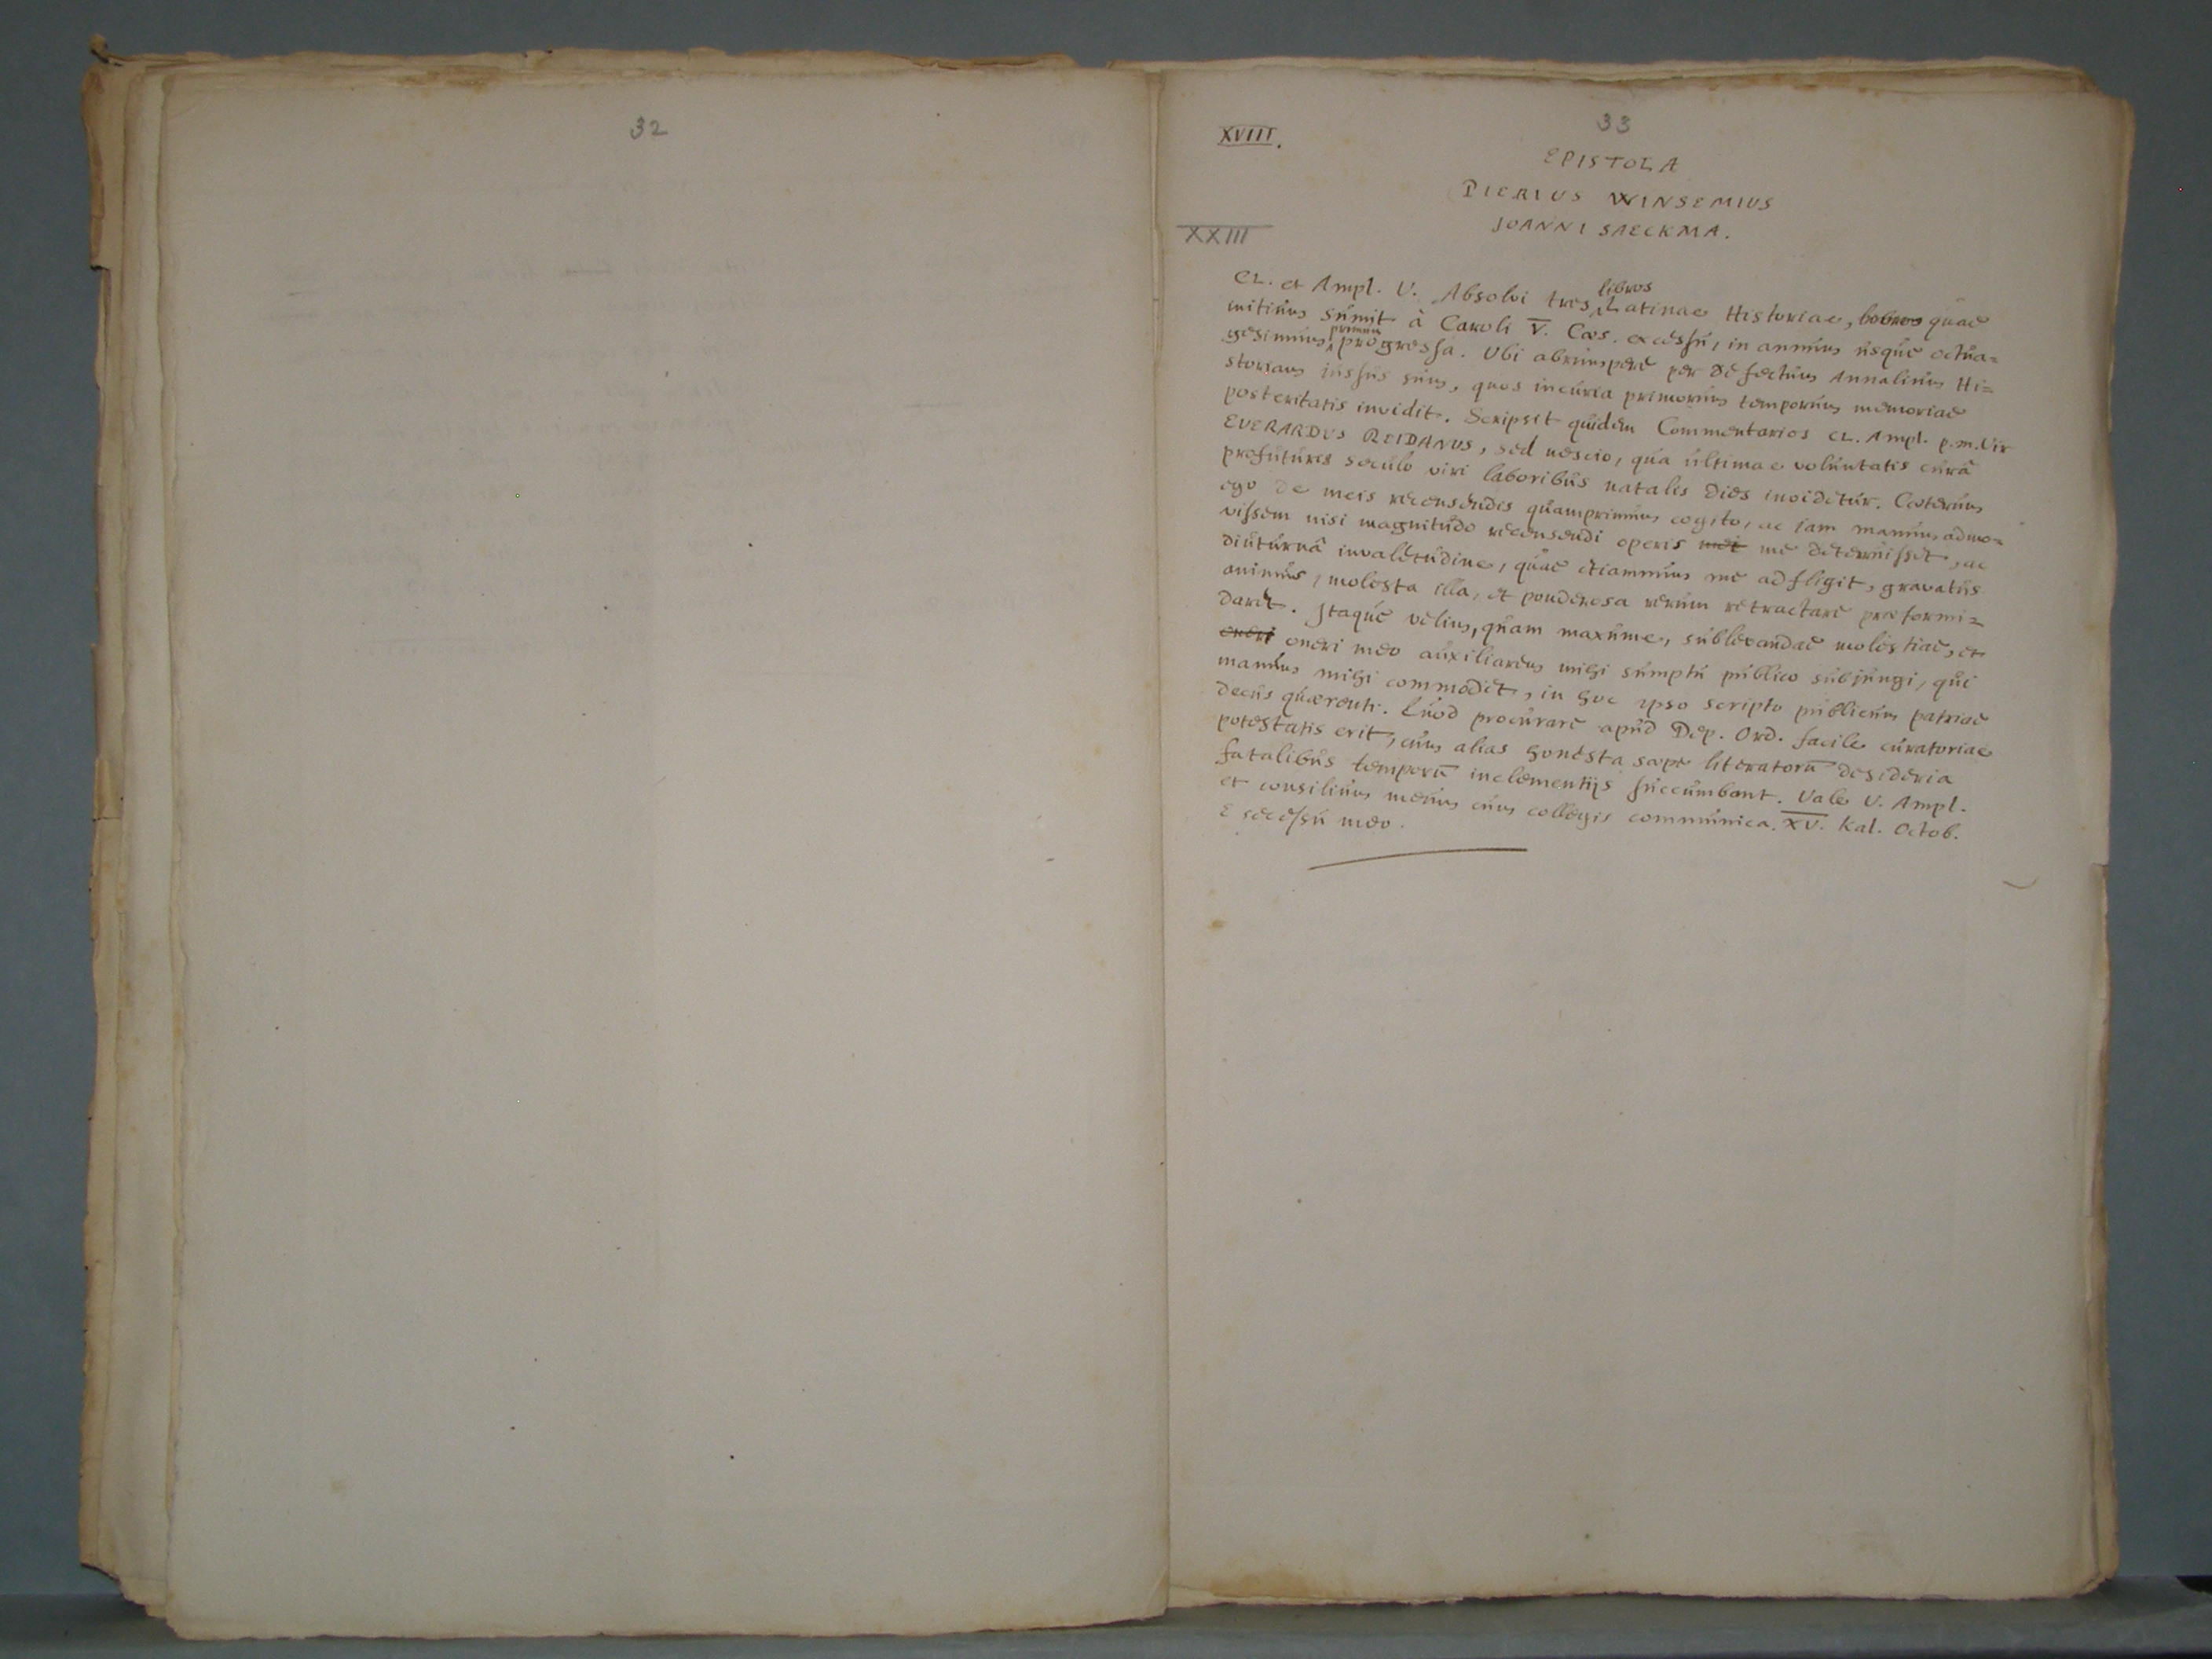 32
33
XVIII.
EPISTOLA
PIERIUS WINSEMIUS
JOANNI SAECKMA.
XXIII
CL. et Ampl. V. Absolvi tres libros Latinae Historiae, quae
initium sumit à Caroli V. Caes. excessu, in annum usque octua=
gesimum primum progressa. Ubi abrumpere per defectum Annalium Hi=
storiam jussus sum, quos incuria priorum temporum memoriae
posteritatis invidit. Scripsit quidem Commentarios CL. Ampl. p.m. Vir
EVERARDUS REIDANUS, sed nescio, qua ultimae voluntatis curâ
profuturis seculo viri laboribus natalis dies invidetur. Caeterum
ego de meis recensendis quamprimum cogito, ac jam manum admo=
vissem nisi magnitudo recensendi operis mei me deterruisset, ac
diuturnâ invaletudine, quae etiamnum me adfligit, gravatus
animus, molesta illa, et ponderosa rerum retractare praeformi=
daret. Itaque velim, quam maxume, sublevandae molestiae, et
oneri oneri meo auxiliarem mihi sumptu publico subjungi, qui
manum mihi commodet, in hoc ipso scripto publicum patriae
decus quaerenti. Quod procurare apud Dep. Ord. facile curatoriae
potestatis erit, cum alias honesta saepe literatorū desideria
fatalibus temporū inclementijs succumbant. Vale V. Ampl.
et consilium meum cum collegis communica. XV. Kal. Octob.
E secessu meo.